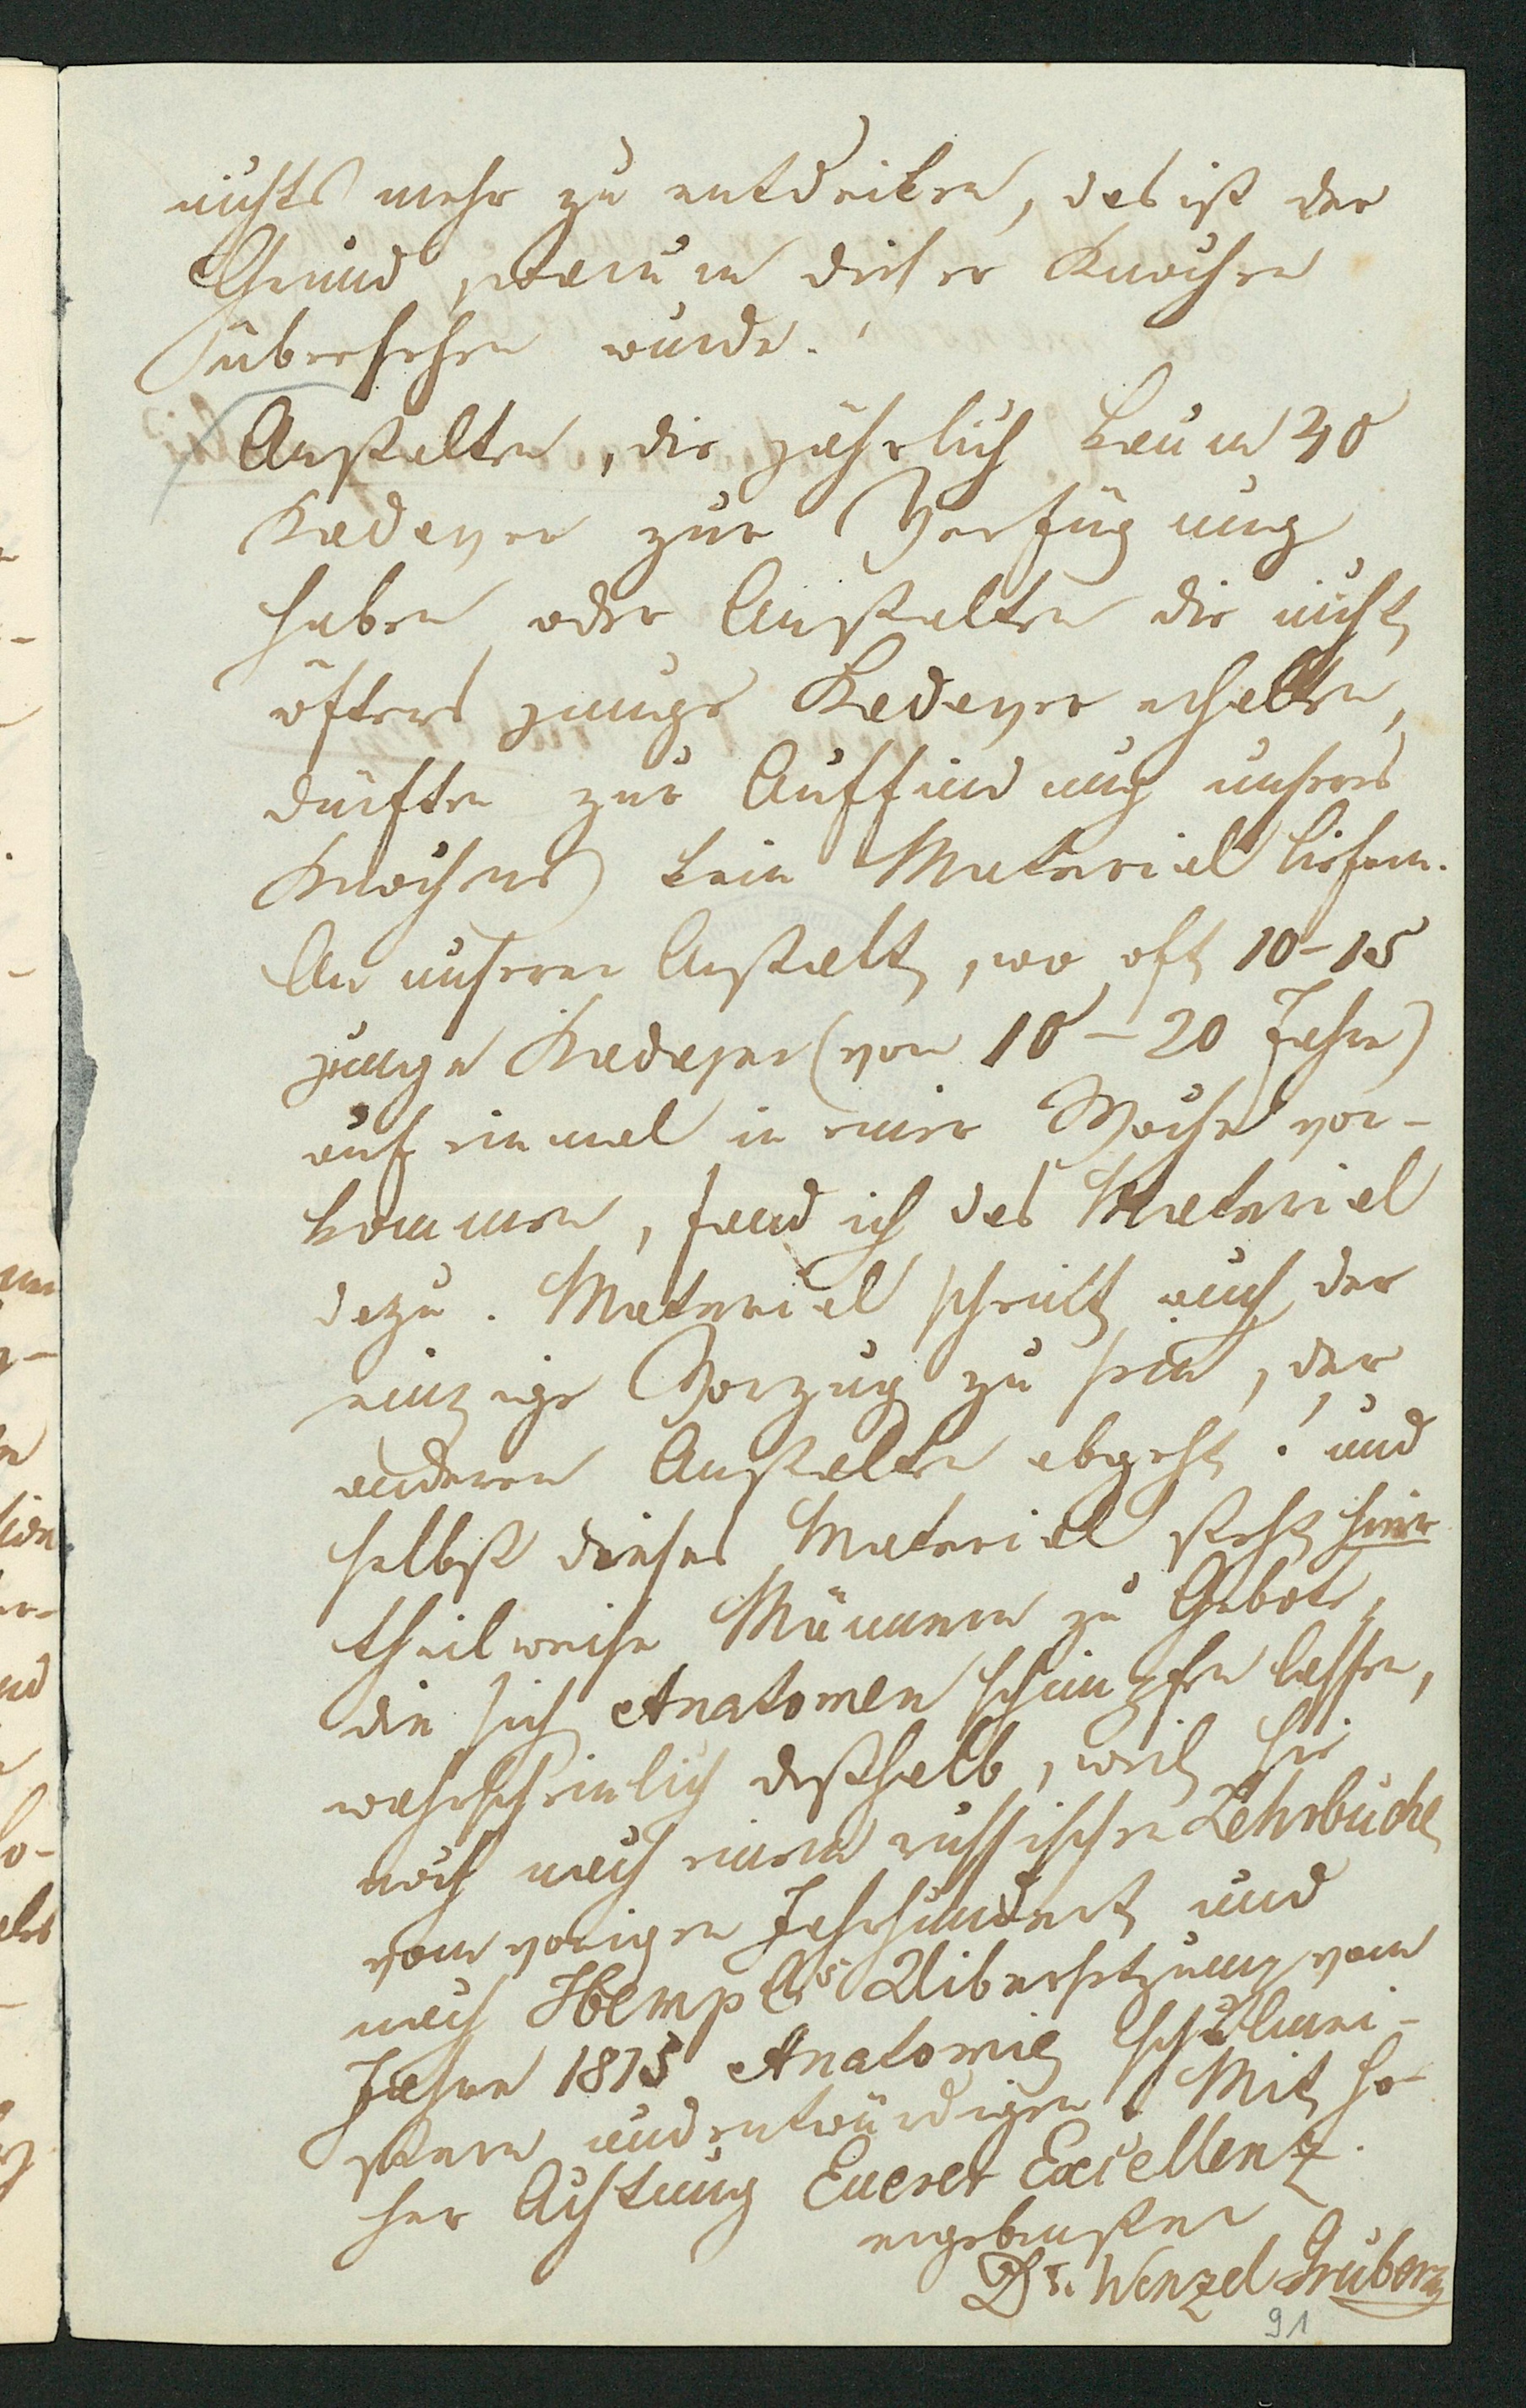 nichts mehr zu entdecken, das ist der
Grund, warum dieser Knochen
übersehen wurde.
Anstalten, die jährlich kaum 40
Kadaver zur Verfügung
haben, oder Anstalten die nicht
öfters junge Kadaver erhalten,
dürften zur Auffindung unseres
Knochens kein Material liefern.
An unserer Anstalt, wo oft 10-15
junge Kadaver (von 10-20 Jahre)
auf einmal in einer Woche vor-
kommen, fand ich das Material
dazu. Material scheint auch der
einzige Vorzug zu sein, der
anderen Anstalten abgeht! und
selbst dieses Material steht hier
theilweise Männern zu Gebote,
die sich Anatomen schimpfen lassen,
wahrscheinlich desshalb, weil sie
noch nach einem russischen Lehrbuche
vom vorigen Jahrhundert und
nach Hempels Uibersetzung vom
Jahre 1815 Anatomie schulmei-
stern und entwürdigen! Mit ho-
her Achtung Euerer Excellenz
ergebenster
Dr. Wenzel Gruber
91